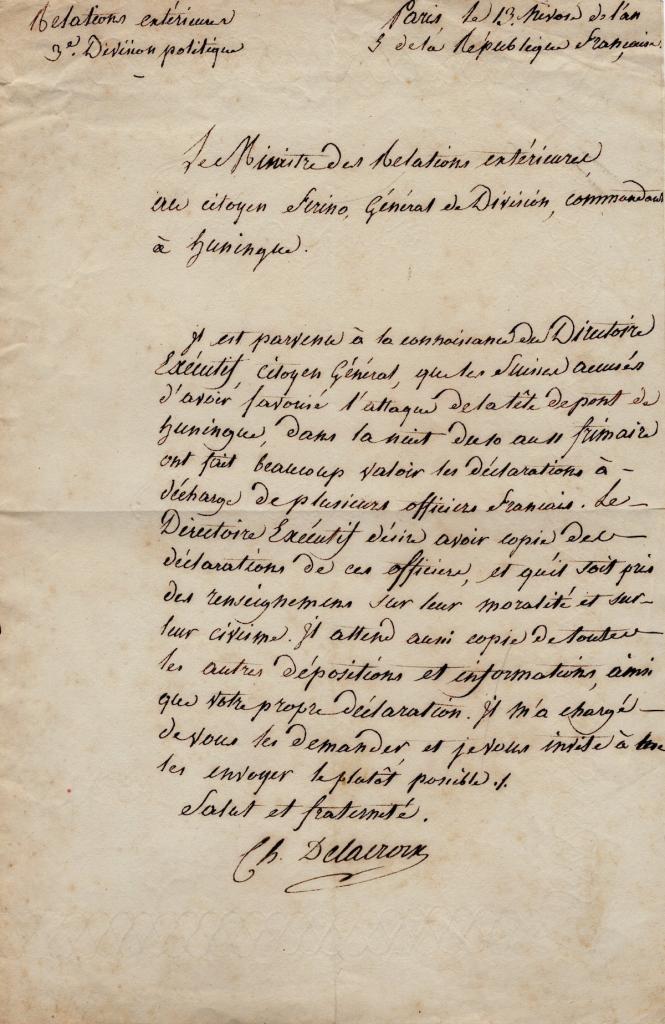 Relations extérieures
3e. Division politique
Paris le 13 Nivose de l'an
5 de la République Française
Le Ministre des Relations extérieures
au citoyen Ferino, Général de Division, commandant
à huningue.
Il est parvenu à la connaissance du Directoire
Exécutif, citoyen Général, que les Suisses accusés
d'avoir favorisé l'attaque de la tête de pont de
huningue, dans la nuit du 10 au 11 frimaire
ont fait beaucoup valoir les déclarations à
décharge de plusieurs officiers français. Le
Directoire Exécutif désire avoir copie des
déclarations de ces officiers, et qu'il soit pris
des renseignemens sur leur moralité et sur
leur civisme. Il attend aussi copie de toutes
les autres dépositions et informations, ainsi
que votre propre déclaration. Il m'a chargé
de vous les demander, et je vous invite à me
les envoyer le plutôt possible ./.
Salut et fraternité.
Ch. Delacroix